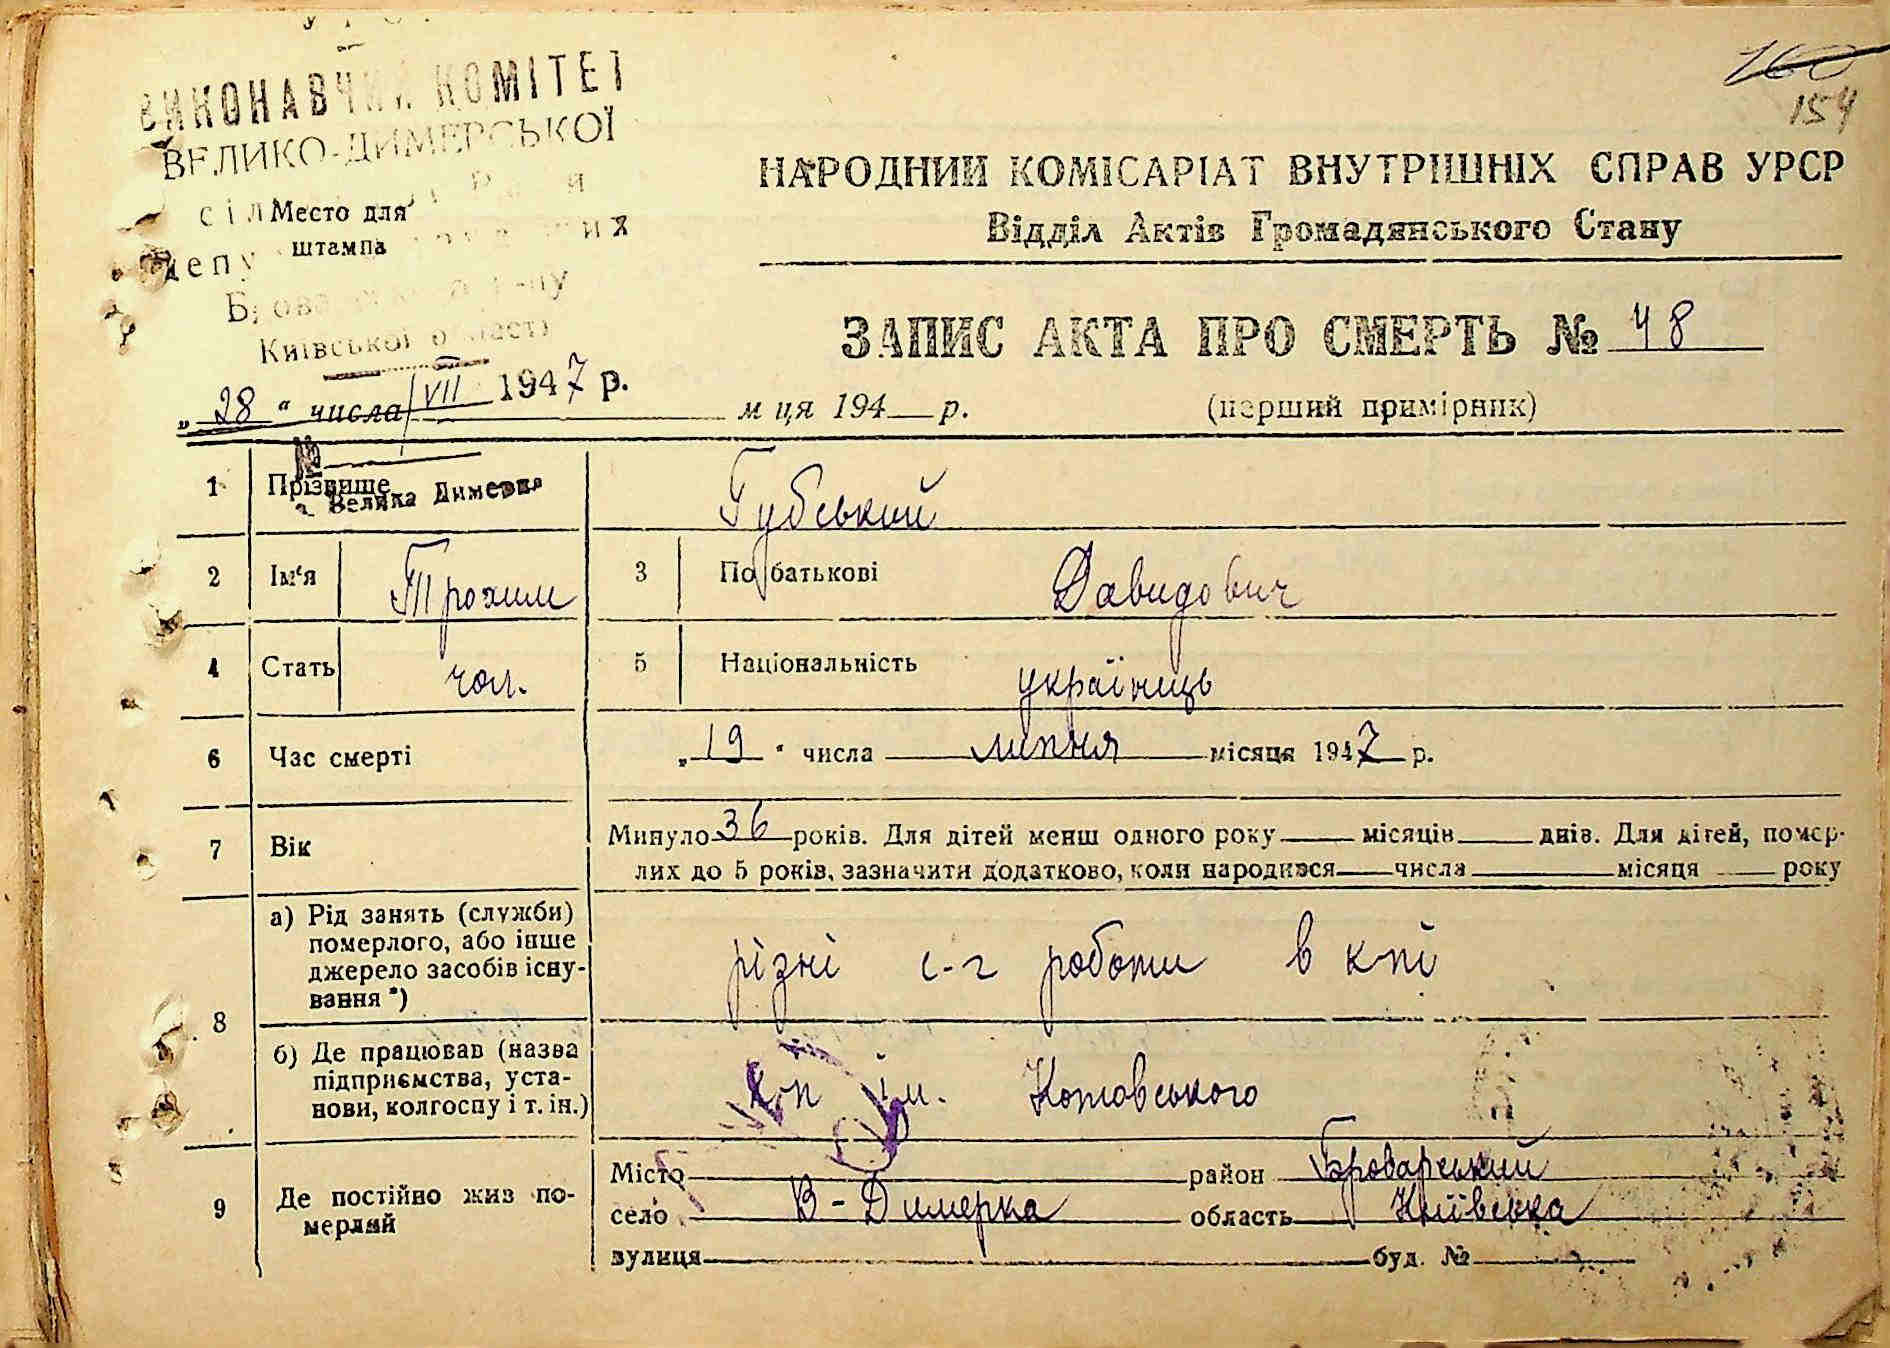 ВИКОНАВЧИЙ КОМІТЕТ
ВЕЛИКО-ДИМЕРСЬКОЇ
Место для
штампа
Київської області
„28“ числа VII 1947 р. м ця 194 р.
№
Велика Димерка
160
154
НАРОДНИЙ КОМІСАРІАТ ВНУТРІШНІХ СПРАВ УРСР
Відділ Актів Громадянського Стану
ЗАПИС АКТА ПРО СМЕРТЬ № 48
(перший примірник)
1 Прізвище Губський
2 Ім'я Трохим 3 По батькові Давидович
4 Стать чол. 5 Національність українець
6 Час смерті „19“ числа липня місяця 1947 р.
7 Вік Минуло 36 років. Для дітей менш одного року місяців днів. Для дітей, помер-
лих до 5 років, зазначити додатково, коли народився числа місяця року
8 а) Рід занять (служби)
померлого, або інше
джерело засобів існу-
вання *)
різні с-г роботи в к-пі
б) Де працював (назва
підприємства, уста-
нови, колгоспу і т. ін.)
к-п ім. Котовського
9 Де постійно жив по-
мерлий
Місто район Броварський
село В-Димерка область Київська
вулиця буд. №